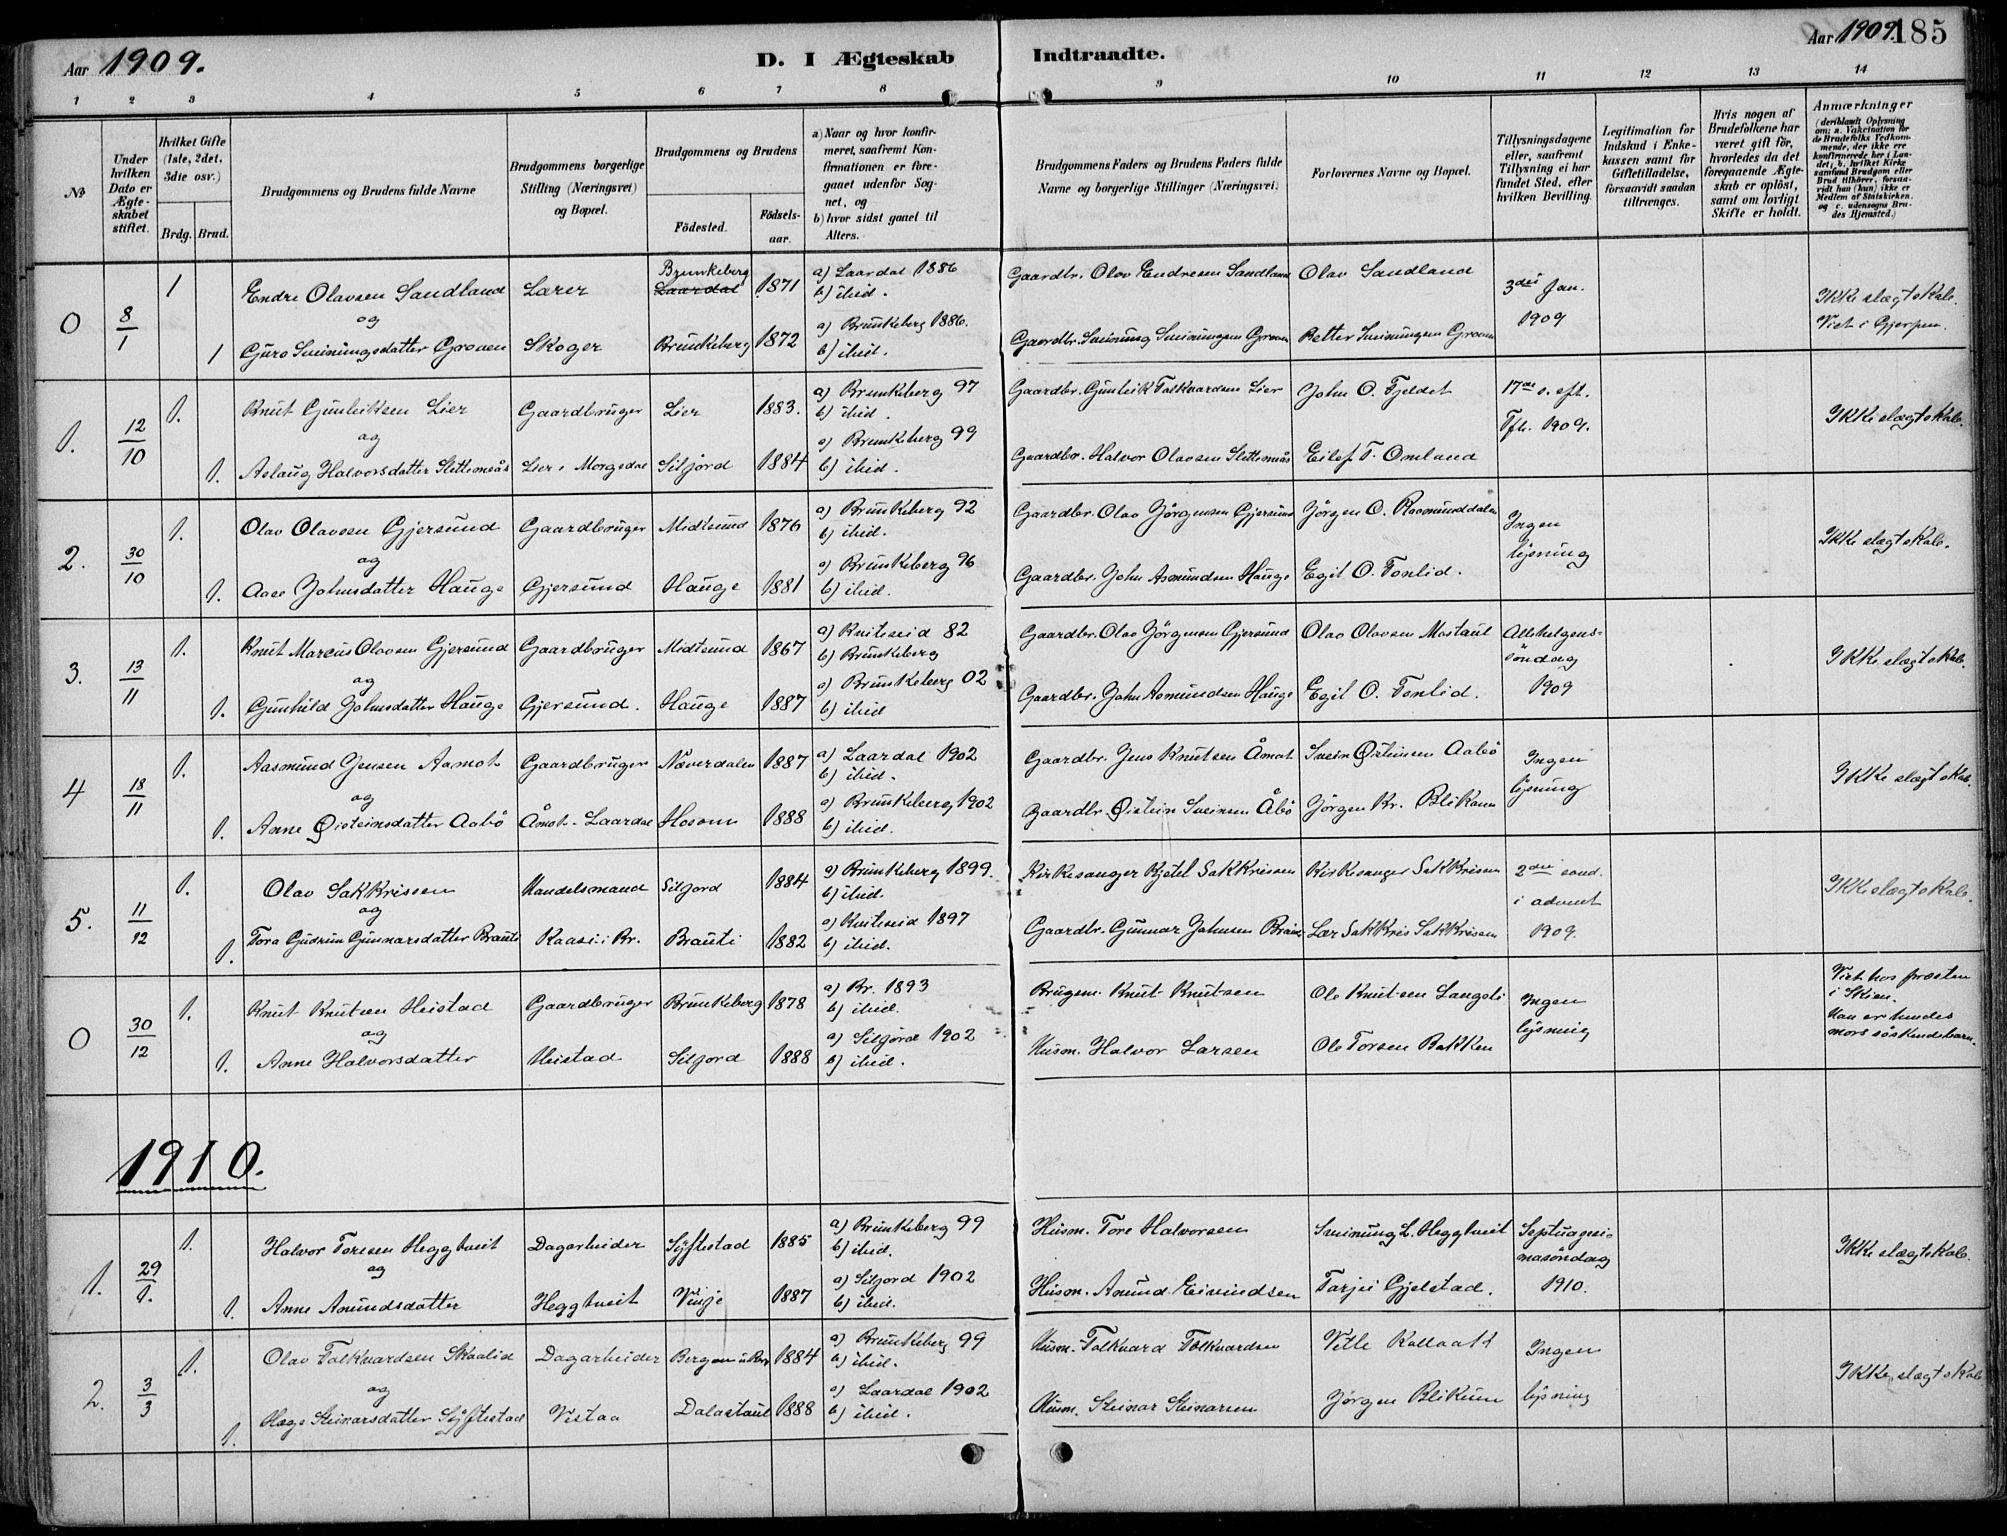 Aar 1909.
D. I Ægteskab Indtraadte.
Aar 1909. 185
1 2 3 4 5 6 7 8 9 10 11 12 13 14
No
Under hvilken Dato er Ægteskabet stiftet.
Hvilket Gifte (1ste, 2det, 3die osv.)
Brdg. Brud.
Brudgommens og Brudens fulde Navne
Brudgommens borgerlige Stilling (Næringsvei) og Bopæl.
Brudgommens og Brudens
Fødested.
Fødselsaar.
a) Naar og hvor konfirmeret, saafremt Konfirmationen er foregaaet udenfor Sognet, og
b) hvor sidst gaaet til Alters.
Brudgommens Faders og Brudens Faders fulde Navne og borgerlige Stillinger (Næringsvei)
Forlovernes Navne og Bopæl.
Tillysningsdagene eller, saafremt Tillysning ei har fundet Sted, efter hvilken Bevilling.
Legitimation for Indskud i Enkekassen samt for Giftetilladelse, forsaavidt saadan tiltrænges.
Hvis nogen af Brudefolkene har været gift før, hvorledes da det foregaaende Ægteskab er opløst, samt om lovligt Skifte er holdt.
Anmærkninger (deriblandt Oplysning om: a. Vakcination for de Brudefolks Vedkommende, der ikke ere konfirmerede her i Landet; b. hvilket Kirkesamfund Brudgom eller Brud tilhører, forsaavidt han (hun) ikke er Medlem af Statskirken. og c. udensogns Brudes Hjemsted.)
0 8/1 1 Endre Olavsen Sandland Lærer Brunkeberg Laardal 1871 a) Laardal 1886 b) ibid. Gaardbr. Olav Endresen Sandland Olav Sandland 3die Jan. 1909 Ikke slægtskab. Viet i Gjerpen.
og
1 Guro Sveinungsdatter Groven Skoger Brunkeberg 1872 a) Brunkeberg 1886. b) ibid. Gaardbr. Sveinung Sveinungsen Groven Petter Sveinungsen Groven
1. 12/10 1. Knut Gunleiksen Lier Gaardbruger Lier 1883. a) Brunkeberg 97 b) ibid. Gaardbr. Gunleik Folkvardsen Lier John O. Fjeldet 17de s. eft. Tfh. 1909. Ikke slægtskab.
og
1. Aslaug Halvorsdatter Slettemeås Lier i Morgedal Siljord 1884 a) Brunkeberg 99 b) ibid. Gaardbr. Halvor Olavsen Slettemeås Eilef T. Omland
2. 30/10 1. Olav Olavsen Gjersund Gaardbruger Midtsund 1876 a) Brunkeberg 92 b) ibid. Gaardbr. Olav Jørgensen Gjersund Jørgen O. Rasmunddalen Ingen lysning Ikke slægtskab.
og
1. Aase Johnsdatter Hauge Gjersund Hauge 1881 a) Brunkeberg 96 b) ibid. Gaardbr. John Asmundsen Hauge Egil O. Tonlid.
3. 13/11 1. Knut Marcus Olavsen Gjersund Gaardbruger Midtsund 1867 a) Kviteseid 82 b) Brunkeberg Gaardbr. Olav Jørgensen Gjersund Olav Olavsen Mostaul Allehelgenssøndag 1909 Ikke slægtskab.
og
1. Gunhild Johnsdatter Hauge Gjersund. Hauge 1887 a) Brunkeberg 02 b) ibid Gaardbr. John Asmundsen Hauge Egil O. Tonlid.
4 18/11 1. Aasmund Jensen Aamot Gaardbruger Næverdalen 1887 a) Laardal 1902 b) ibid. Gaardbr. Jens Knutsen Åmot Svein Øisteinsen Aabø Ingen lysning Ikke slægtskab.
og
1. Anne Øisteinsdatter Aabø Åmot. Laardal Hosom 1888 a) Brunkeberg 1902 b) ibid. Gaardbr. Øistein Sveinsen Åbø Jørgen Kr. Blikom
5. 11/12 1. Olav Sakkrissen Handelsmand Siljord 1884 a) Brunkeberg 1899. b) ibid. Kirkesanger Kjetil Sakkrissen Kirkesanger Sakkrissen 2den sønd. i advent 1909. Ikke slægtskab.
og
1. Tora Gudrun Gunnarsdatter Brauti Kaasi i Br. Brauti 1882 a) Kviteseid 1897 b) ibid. Gaardbr. Gunnar Johnsen Brauti Lær Sakkris Sakkrissen
0 30/12 1. Knut Knutsen Heistad Gaardbruger Brunkeberg 1878 a) Br. 1893 b) ibid. Brugsm. Knut Knutsen Ole Knutsen Langeli Ingen lysning Viet hos præsten i Skien. Han er hendes mors søskendebarn.
og
1. Anne Halvorsdatter Heistad Siljord 1888 a) Siljord 1902 b) ibid. Husm. Halvor Larsen Ole Torsen Bakken
1910.
1. 29/1. 1. Halvor Toresen Heggtveit Dagarbeider Syftestad 1885 a) Brunkeberg 99 b) ibid. Husm. Tore Halvorsen Sveinung L. Heggtveit Septuagesimasøndag 1910. Ikke slægtskab.
og
1. Anne Amundsdatter Heggtveit Vinje 1887 a) Siljord 1902 b) ibid. Husm. Amund Eivindsen Tarjei Gjelstad.
2. 3/3 1. Olav Folkvardsen Skaalid Dagarbeider Bergen 1884 a) Brunkeberg 99 b) ibid. Husm. Folkvard Folkvardsen Vetle Kallaak Ingen lysning Ikke slægtskab
og
1. Hæge Steinarsdatter Syftestad Vistaa Dalastaul 1888 a) Laardal 1902 b) ibid. Husm. Steinar Steinarsen Jørgen Blikum